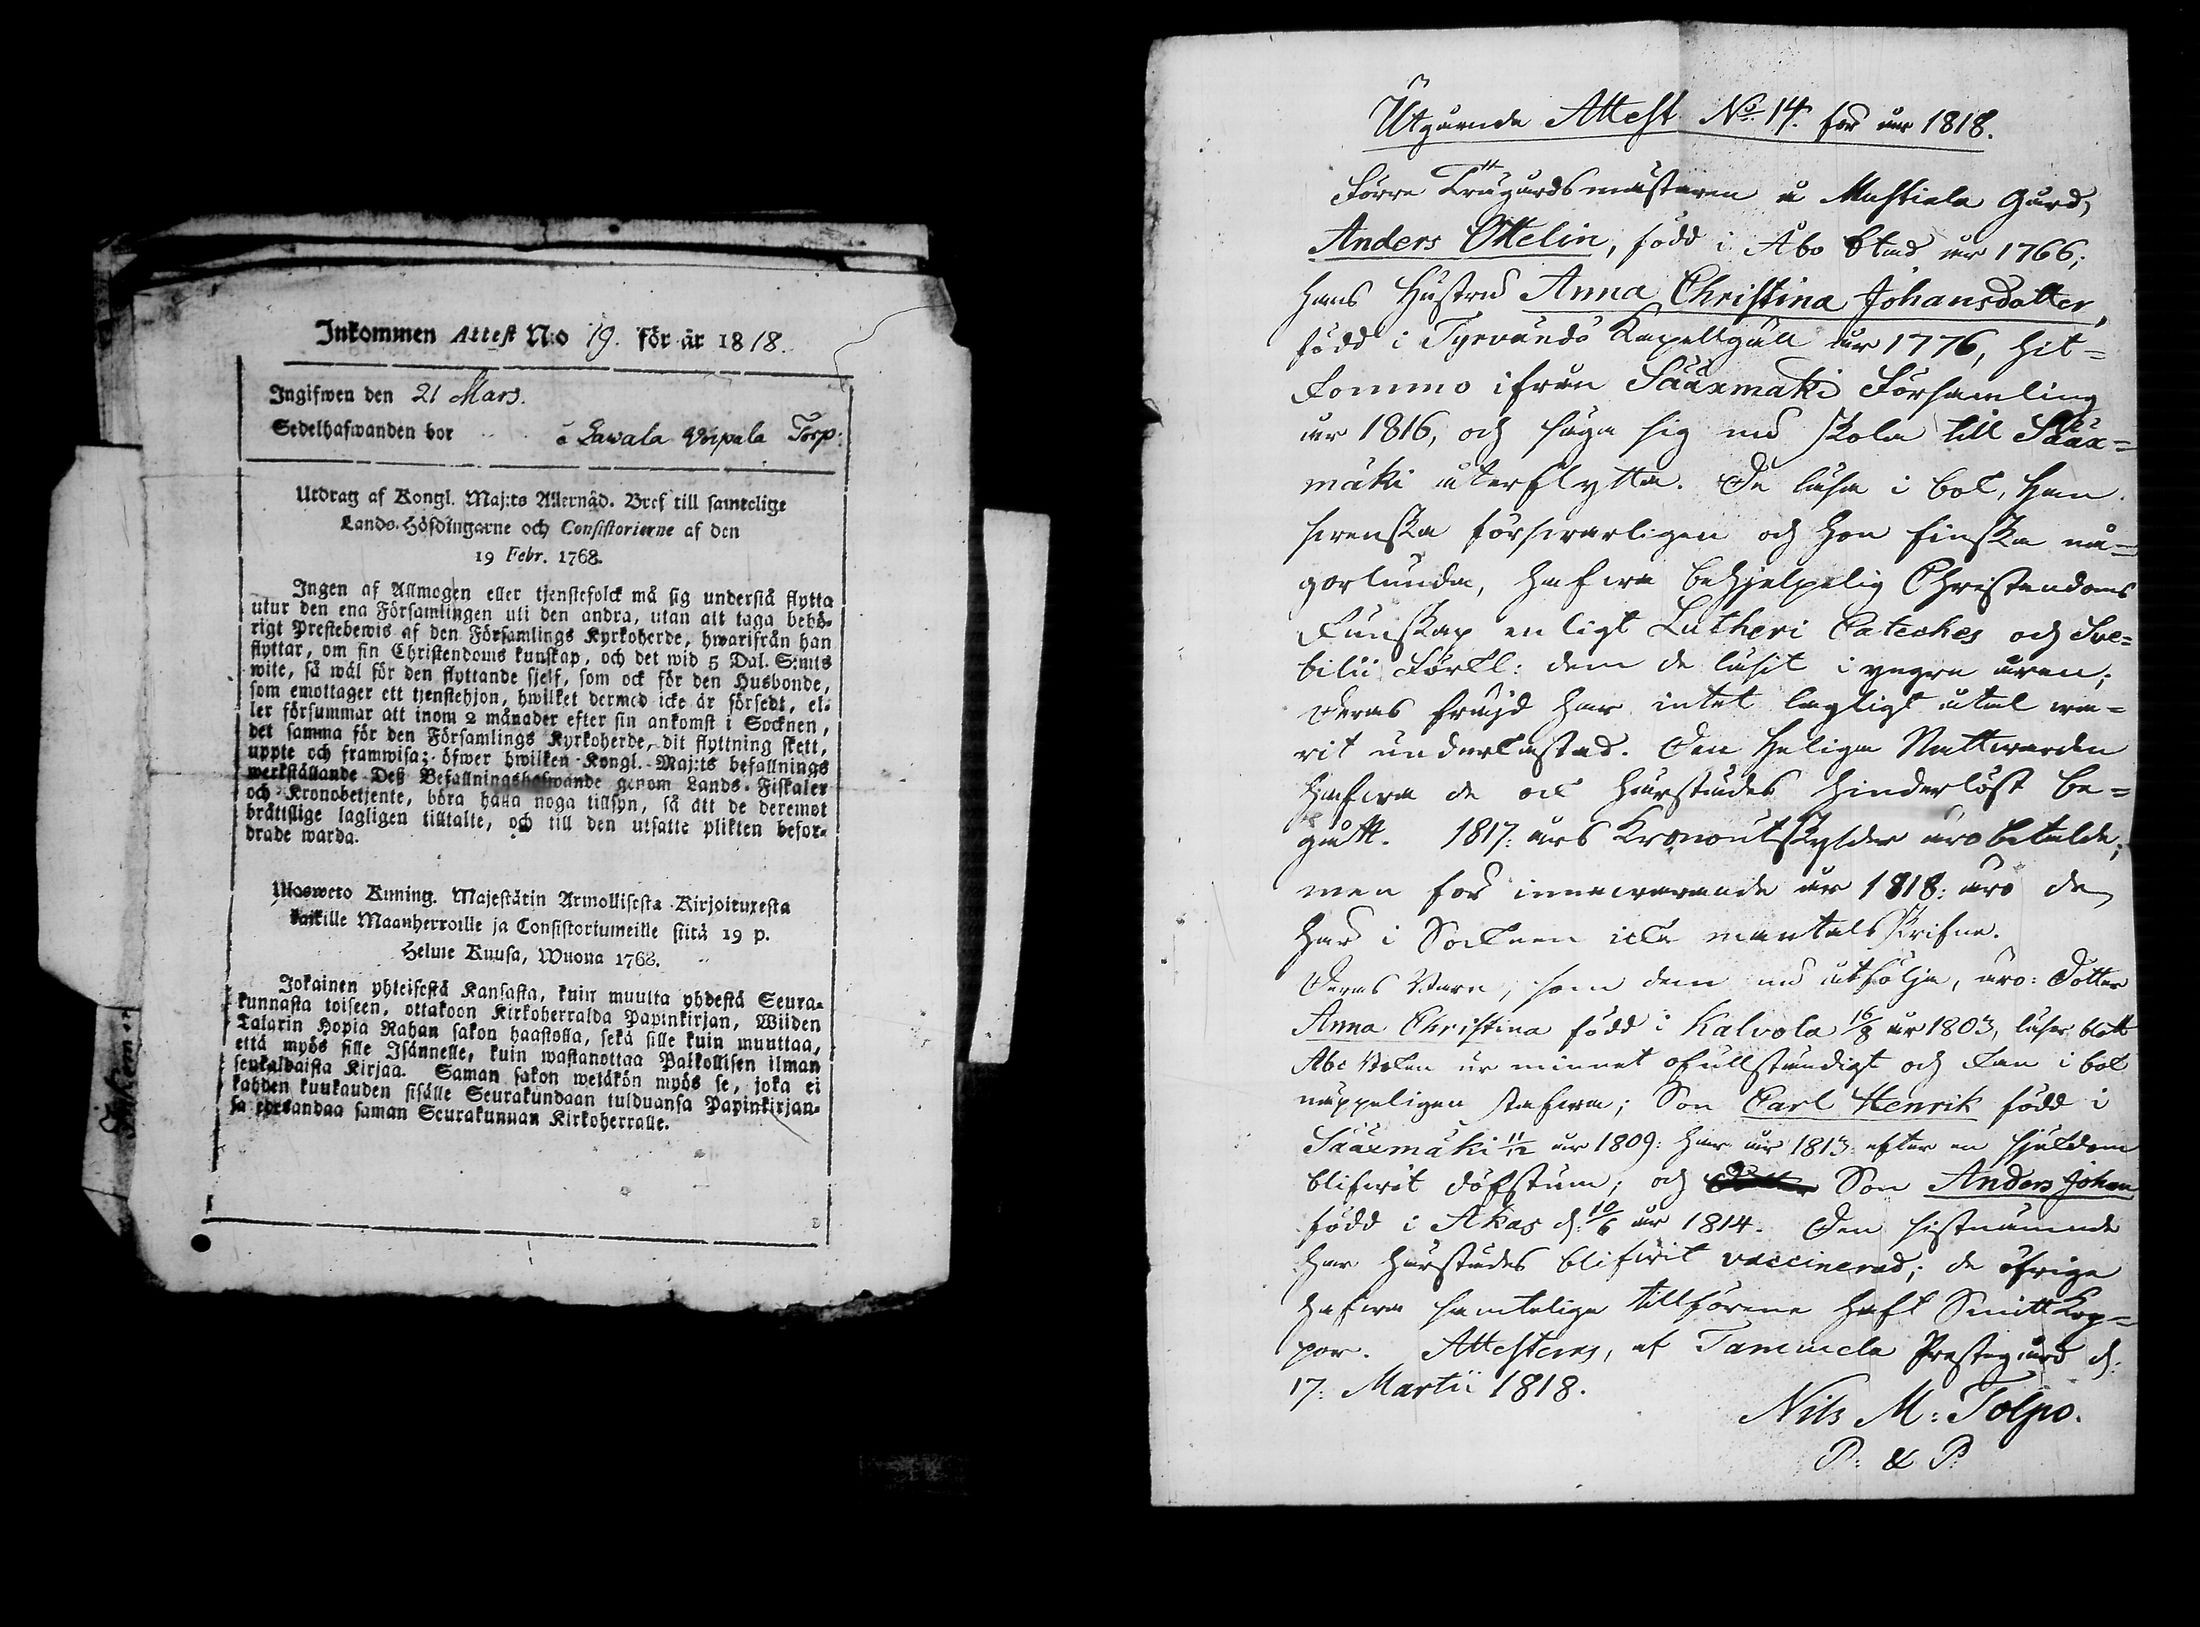 Inkommen Attest N:o 19. för år 1818.
Ingifwen den 21 Mars.
Sedelhafwanden bor å Lawala Woipala Torp:
Utdrag af Kongl. Maj:ts Allernåd. Bref till samtelige
Lands-Höfdingarne och Consistorierne af den
19 Febr. 1768.
Ingen af Allmogen eller tjenstefolck må sig understå flytta
utur den ena Församlingen uti den andra, utan att taga behö-
rigt Prestebewis af den Församlings Kyrkoherde, hwarifrån han
flyttar, om sin Christendoms kunskap, och det wid 5 Dal. S:mts
wite, så wäl för den flyttande sjelf, som ock för den Husbonde,
som emottager ett tjenstehjon, hwilket dermed icke är försedt, el-
ler försummar att inom 2 månader efter sin ankomst i Socknen,
det samma för den Församlings Kyrkoherde, dit flyttning skett,
uppte och framwisa; öfwer hwilken Kongl. Maj:ts befallnings
werkställande Deß Befallningshafwande genom Lands-Fiskaler
och Kronobetjente, böra hålla noga tillsyn, så att de deremot
brättslige lagligen tilltalte, och till den utsatte plikten befor-
drade warda.
Ulosweto Kuning. Majestätin Armollisesta Kirjoituxesta
kaikille Maanherroille ja Consistoriumeille siitä 19 p.
Helmi Kuusa, Wuona 1768.
Jokainen yhteisestä Kansasta, kuin muutta yhdestä Seura-
kunnasta toiseen, ottakoon Kirkoherralda Papinkirjan, Wiiden
Talarin Hopia Rahan sakon haastolla, sekä sille kuin muuttaa,
että myös sille Isännelle, kuin wastanottaa Palkollisen ilman
senkaldaista Kirjaa. Saman sakon wetäkön myös se, joka ei
kahden kuukauden sisälle Seurakundaan tulduansa Papinkirjan-
sa edesandaa saman Seurakunnan Kirkoherralle.
Inkomne
Utgående Attest No 14. för år 1818.
Förre Trägårdsmästaren å Mustiala Gård,
Anders Ottelin, född i Åbo Stad år 1766;
hans Hustru Anna Christina Johansdotter,
född i Tyrvändö Kapellgäll år 1776, hit-
kommo ifrån Sääxmäki Församling
år 1816, och säga sig nu skola till Sääx-
mäki återflytta. De läsa i bok, Han
svenska försvarligen och hon finska nå-
gorlunda, hafwa behjelpelig Christendoms
kunskap enligt Lutheri Cateches och Sve-
bilii Förkl: dem de läsit i yngre åren;
deras frejd har intet lagligt åtal wa-
rit underkastad. Den Heliga Nattwarden
hafwa de ock härstädes hinderlöst be-
gått. 1817: års Kronoutskylder äro betalde;
men för innewarande år 1818: äro de
här i Socknen icke mantalsskrifne.
Deras Barn, som dem nu åtfölja, äro: Dotter
Anna Christina född i Kalvola 16/8 år 1803, läser blott
Abc Boken ur minnet ofullständigt och kan i bok
näppeligen stafwa; Son Carl Henrik född i
Sääxmäki 11/12 år 1809: har år 1813 efter en sjukdom
blifwit döfstum; och Son Anders Johan
född i Akas d: 10/6 år 1814. Den sistnämnde
har härstädes blifwit vaccinerad; de öfrige
hafwa samtelige tillförene haft Smittkop-
por. Attesteras, af Tammela Prestegård d:
17: Martii 1818.
Nils M: Tolpo.
P: & P: